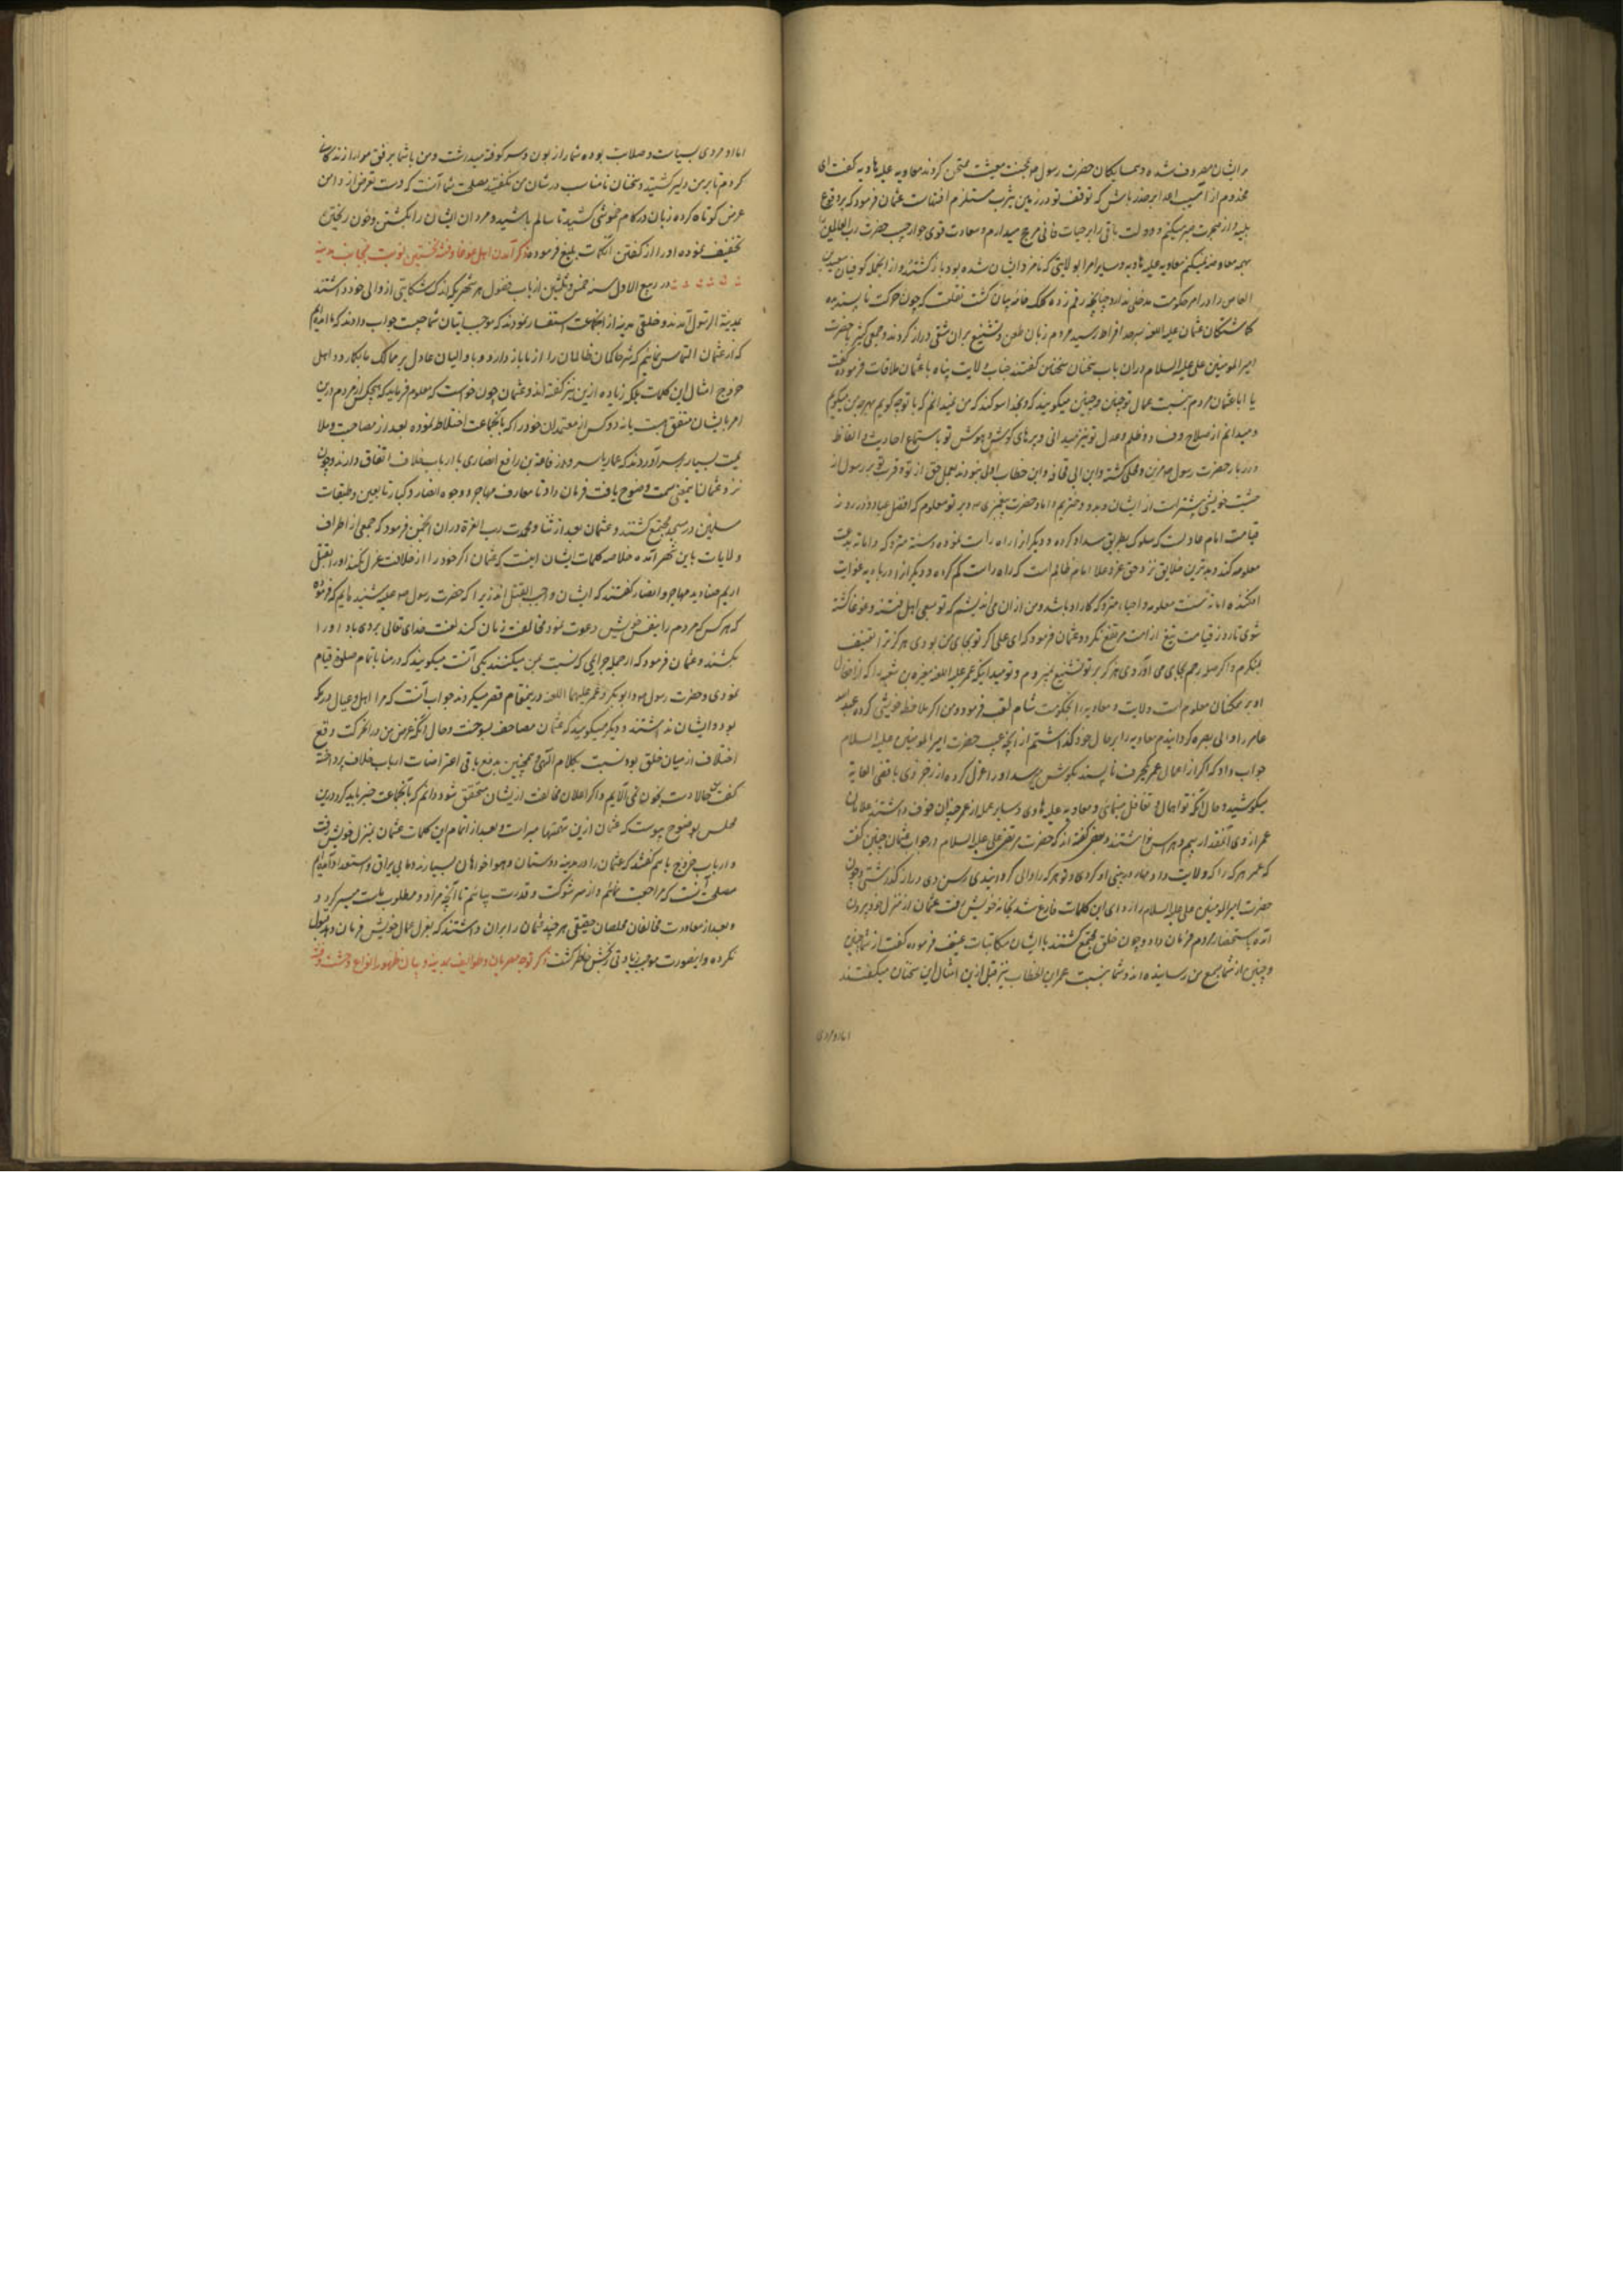 بر ایشان مصروف شده و همسایگان حضرت رسول بمحنت معیشت ممتحن کردند معاویه علیه هاویه گفت ای
مخدوم از آسیب اعدا بر حذر باش که توقف تو در زمین یثرب مستلزم افتهاست عثمان فرمود که بر وقوع
بلیه و از هجرت صبر میکنم و دولت باقی را بر حیات فانی مرجح میدارم و سعادت قوی جوار حبیب حضرت رب العالمین
بهمه معاوضه نمیکنم معاویه علیه هاویه و سایر امرا بولایتی که نامزد ایشان شده بود باز کشتند و از انجمله کوفیان سعید بن
العاص را در امر حکومت مدخل نداد چنانچه رقم زده کلک خانه بیان کشت نقلست که چون حرکت ناپسندیده
کماشتکان عثمان علیه اللعنه بسرحد افراط رسید مردم زبان طعن و تشنیع بران شقی دراز کردند و جمعی کثیر با حضرت
امیر المومنین علی علیه السلام دران باب سخنان گفتند جناب ولایت پناه با عثمان ملاقات فرموده گفت
یا ابا عثمان مردم بنسبت عمال تو چنان و چنین میکویند که و بخدا سوکند که من نمیدانم که با تو چه کویم بهر چه من میکویم
و میدانم از صلاح و فساد و ظلم و عدل تو نیز میدانی و پرهای کوش و هوش تو باستماع احادیث و الفاظ
درر بار حضرت رسول مزین و محلی کشته و ابن ابی قحافه و ابن خطاب اولی نبودند بعمل حق از تو و قرب تو بر رسول از
حیثیت خویشی بیشتر است از ایشان و بدو دختر بدامادی حضرت پیغمبری و بر تو معلوم که افضل عباد در روز
قیامت امام عادلست که سلوک بطریق سداد کرده و دیکرانرا راه راست نموده و سنه متروکه و اماته بدعت
معلومه کند و بدترین خلایق نزد حق عز و علا امام ظالم است که راه راست کم کرده و دیکرانرا در بادیه غوایت
افکنده اماته سنت معلومه و احیاء متروکه کار او باشد و من ازان می اندیشم که تو بسعی اهل فتنه و غوغا کشته
شوی تا روز قیامت تیغ از امت مرتفع نکردد عثمان فرمود که ای علی اگر تو بجای من بودی هرکز ترا تعنیف
نمیکردم و اگر صله رحم بجای می اوردی هرکز بر تو تشنیع نمیزدم و تو میدانی که عمر علیه اللعنه مغیره بن شعبه را که
او بر همکنان معلوم است ولایت و معاویه را بحکومت شام نصب فرمود و من اکر ملاحظه خویشی کرده عبدالله
عامر را والی بصره کردانیدم معاویه را بر حال خود کذاشتم از انچه عیب حضرت امیر المومنین علیه السلام
جواب داد که اکر از اعمال عمر حرف ناپسند بکوش میرسید او را عزل کرده از زجر وی باقصی الغایة
میکوشید و حال آنکه تو اهمال و تغافل مینمائی و معاویه علیه هاوی و سایر عمال از عمر چندان خوف داشتند غلامان
عمر از وی آنمقدار بیم و هراس نداشتند و بعضی گفته اند که حضرت مرتضی علی علیه السلام در جواب عثمان چنین گفت
که عمر هرکه را که ولایت داد مهار در بینی او کردی و تو هرکه را والی کردانیدی رسن وی دراز کذاشتی و چون
حضرت امیر المومنین علی علیه السلام از ادای این کلمات فارغ شد بخانه خویش رفت عثمان از منزل خود بیرون
آمده باستحضار مردم فرمان داد و چون خلق مجتمع کشتند با ایشان مکاتبات عنیف فرموده گفت از شما چنان
و چنین از شما بسمع من رسانیده اند و شما بنسبت عمر ابن الخطاب نیز قبل ازین امثال این سخنان میکفتند
اما او مردی
اما او مردی بسیاست و صلابت بوده شما را زبون و سرکوفته میداشت و من با شما برفق و مدارا زندکانی
کردم تا بر من دلیر کشتید و سخنان نامناسب در شان من گفتید مصلحت شما آنست که دست تعرض از دامن
عرض کوتاه کرده زبان در کام خموشی کشید تا سالم باشید و مروان ایشان را بکشتن و خون ریختن
تخفیف نموده او را از کفتن آن کلمات بلیغ فرموده ذکر آمدن اهل غوغا و فتنه نخستین نوبت بجانب مدینه
در ربیع الاول سنه خمس و ثلثین ارباب فضول هر شهر یک که اندک شکایتی از والی خود داشتند
بمدینة الرسول آمدند و خلقی مدینه از انجماعت استفسار نمودند که موجب اتیان شما چیست جواب دادند که ما آمدیم
که از عثمان التماس نمائیم که شر حاکمان ظالمان را از ما باز دارد و با والیان عادل بر ممالک ما بکمارد و اهل
خروج امثال این کلمات بلکه زیاده ازین نیز گفته اند و عثمان چون خواست که معلوم فرماید که هیچکس از مردم درین
امر با ایشان متفق هست یا نه دو کس از معتمدان خود را که با انجماعت اختلاط نموده بعد از مصاحبت و ملا
عیت بسیار بسر آوردند که عمار یاسر و رفاعه بن رافع انصاری با ارباب خلاف اتفاق دارند و چون
نزد عثمان اینمعنی سمت وضوح یافت فرمان داد تا معارف مهاجر و وجوه انصار و کبار تابعین و طبقات
مسلمین در مسجد مجتمع کشتند و عثمان بعد از ثنا و محمدت رب العزة دران انجمن فرمود که جمعی از اطراف
ولایات باین شهر آمده خلاصه کلمات ایشان اینست که عثمان اکر خود را از خلافت عزل نکند او را بقتل
اریم صنادید مهاجر و انصار گفتند که ایشان واجب القتل اند زیرا که حضرت رسول شنیده ایم که فرموده
که هر کس که مردم را بنفس خویش دعوت نمود مخالفت زمان کند لعنت خدای تعالی بر وی باد او را
بکشند و عثمان فرمود که از جمله جرایمی که نسبت بمن میکنند یکی آنست میکویند که در منا باتمام صلوة قیام
نمودی و حضرت رسول و ابوبکر و عمر علیهما اللعنه درینمقام قصر میکردند جواب آنست که مرا اهل و عیال در مکه
بود و ایشان نداشتند و دیکر میکویند که عثمان مصاحف بسوخت و حال آنکه غرض من دران حرکت رفع
اختلاف از میان خلق بود نسبت بکلام الهی و همچنین بدفع باقی اعتراضات ارباب خلاف پرداخته
گفت حالا دست بخون نمی آلایم و اکر اعلان مخالفت ازیشان متحقق شود دانم که با انجماعت چه باید کرد و درین
مجلس بوضوح پیوست که عثمان ازین تهمتها مبراست و بعد از اتمام این کلمات عثمان بمنزل خویش رفت
و ارباب خروج باهم گفتند که عثمان را در مدینه دوستان و هواخواهان بسیارند و ما بی یراق و استعداد آمده ایم
مصلحت آنست که مراجعت نمائیم و از سر شوکت و قدرت بیائیم تا آنچه مراد و مطلوب ماست میسر کردد و
و بعد از معاودت مخالفان مخلصان حقیقی هرچند عثمان را بران داشتند که بعزل عمال خویش فرمان دهد قبول
نکرده و اینصورت موجب زیادتی رنجش خاطر کشت ذکر توجه مصریان و طوایف بمدینه و بیان ظهور انواع وحشت و فتنه